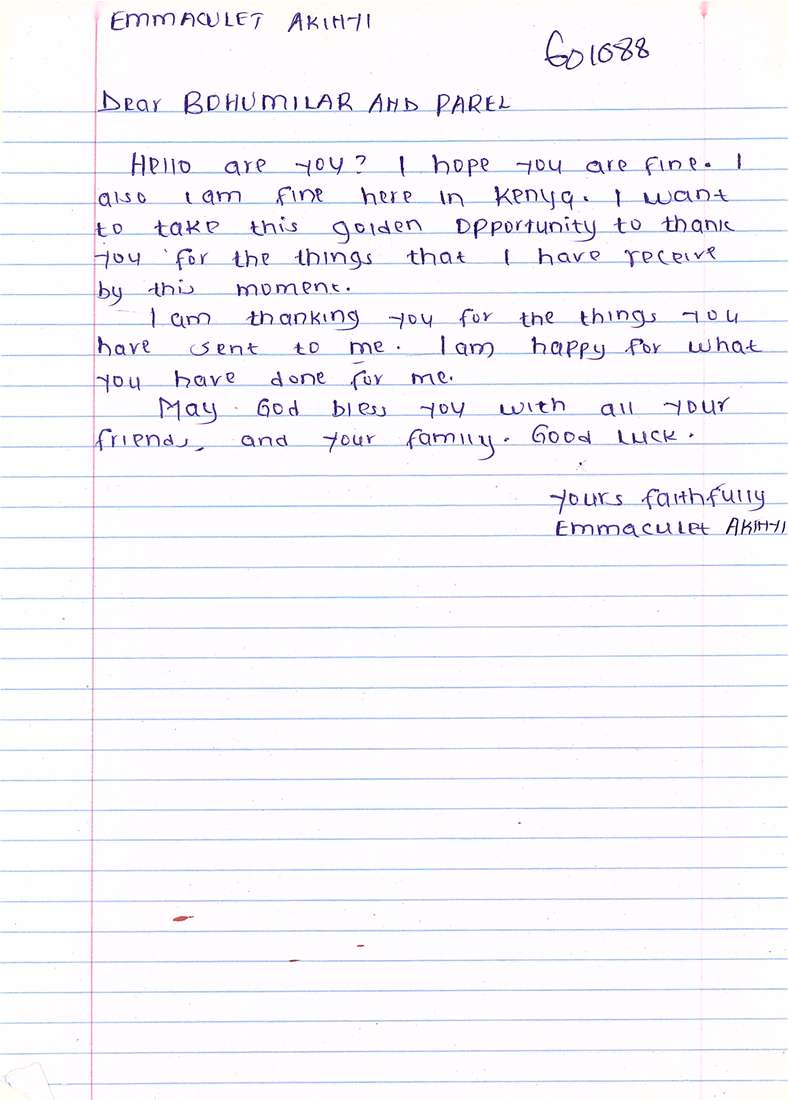 EMMACULET AKINYI
GO1088
Dear BOHUMILAR AND PAREL
Hello are you? I hope you are fine. I
also I am fine here in Kenya. I want
to take this golden Opportunity to thank
you for the things that I have receive
by this moment.
I am thanking you for the things you
have sent to me. I am happy for what
you have done for me.
May God bless you with all your
friends, and your family. Good Luck.
yours faithfully
Emmaculet AKINYI